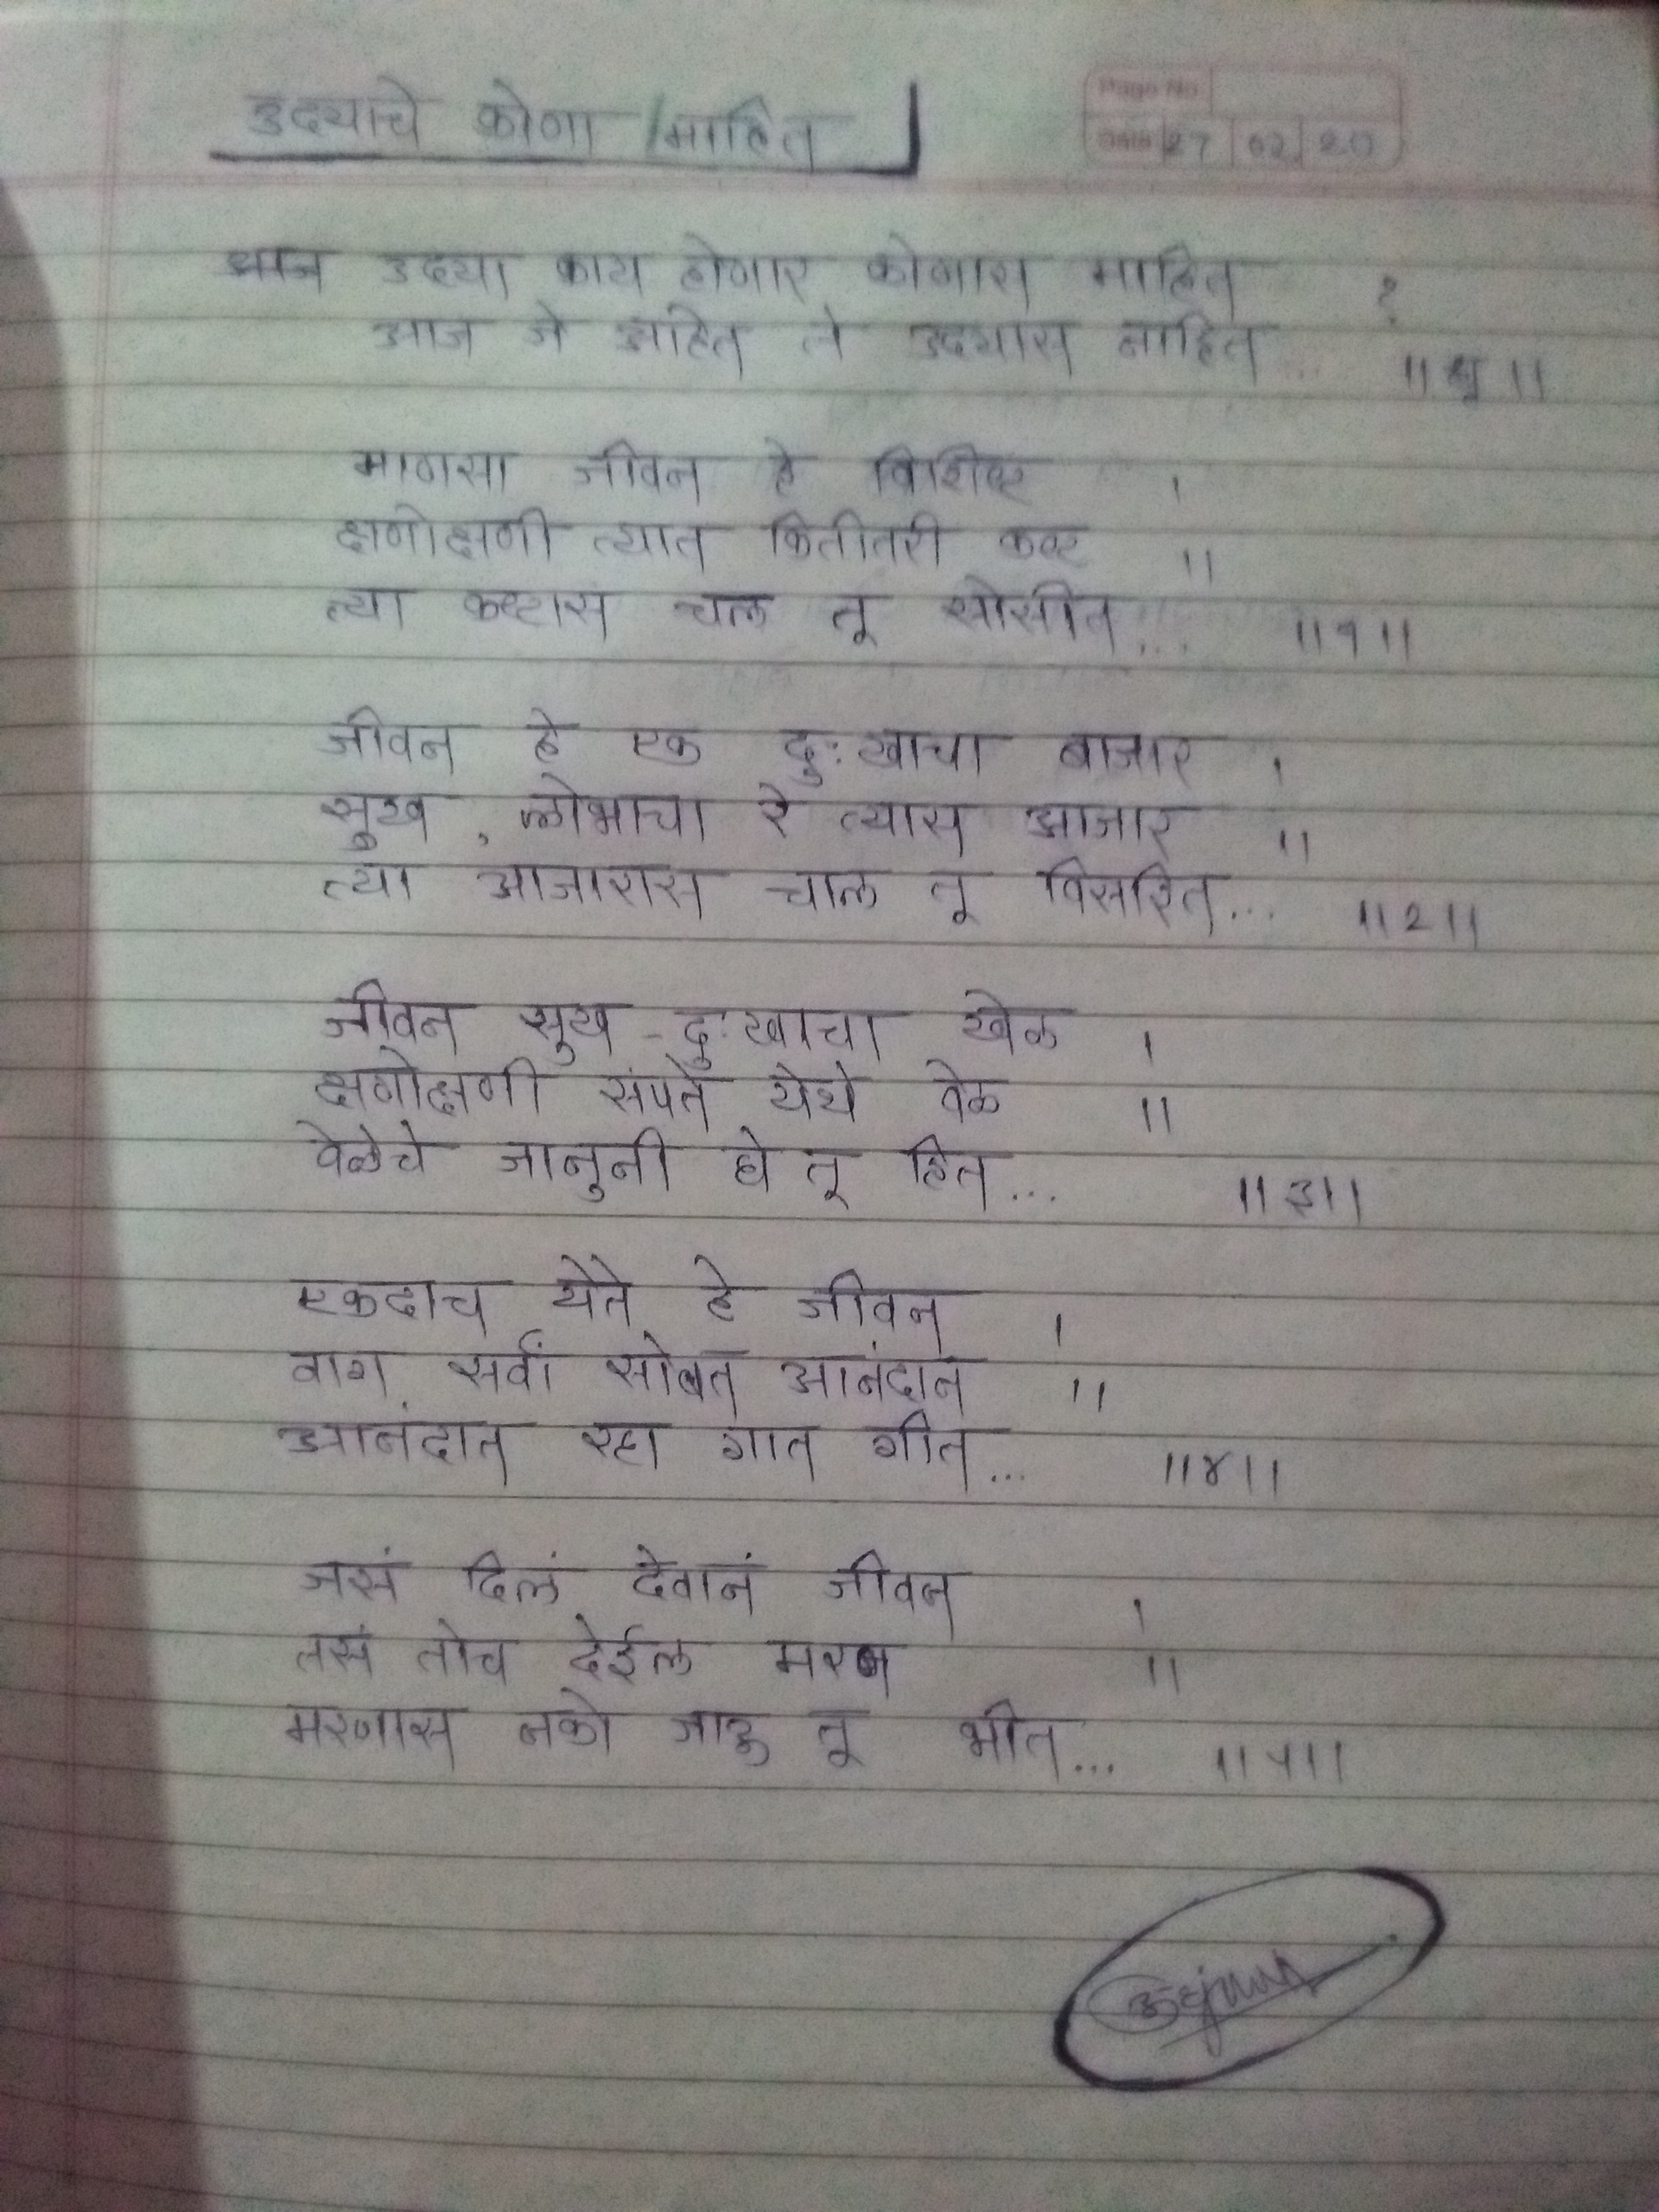 उद्याचे कोणा माहित
Page No.
Date 27 02 20
उद्या काय होणार कोणास माहित ?
आज जे आहित ते उद्यास नाहित... ॥ धृ ॥
माणसा जीवन हे विशिष्ट ।
क्षणोक्षणी त्यात कितीतरी कष्ट ॥
त्या कष्टास चल तू सोसीत... ॥१॥
जीवन हे एक दुःखाचा बाजार ।
सुख, लोभाचा रे त्यास आजार ॥
त्या आजारास चाल तू विसरित... ॥२॥
जीवन सुख-दुःखाचा खेळ ।
क्षणोक्षणी संपते येथे वेळ ॥
वेळेचे जानुनी घे तू हित... ॥३॥
एकदाच येते हे जीवन ।
वाग सर्वां सोबत आनंदान ॥
आनंदात रहा गात गीत... ॥४॥
जसं दिलं देवानं जीवन ।
तसं तोच देईल मरण ॥
मरणास नको जाऊ तू भीत... ॥५॥